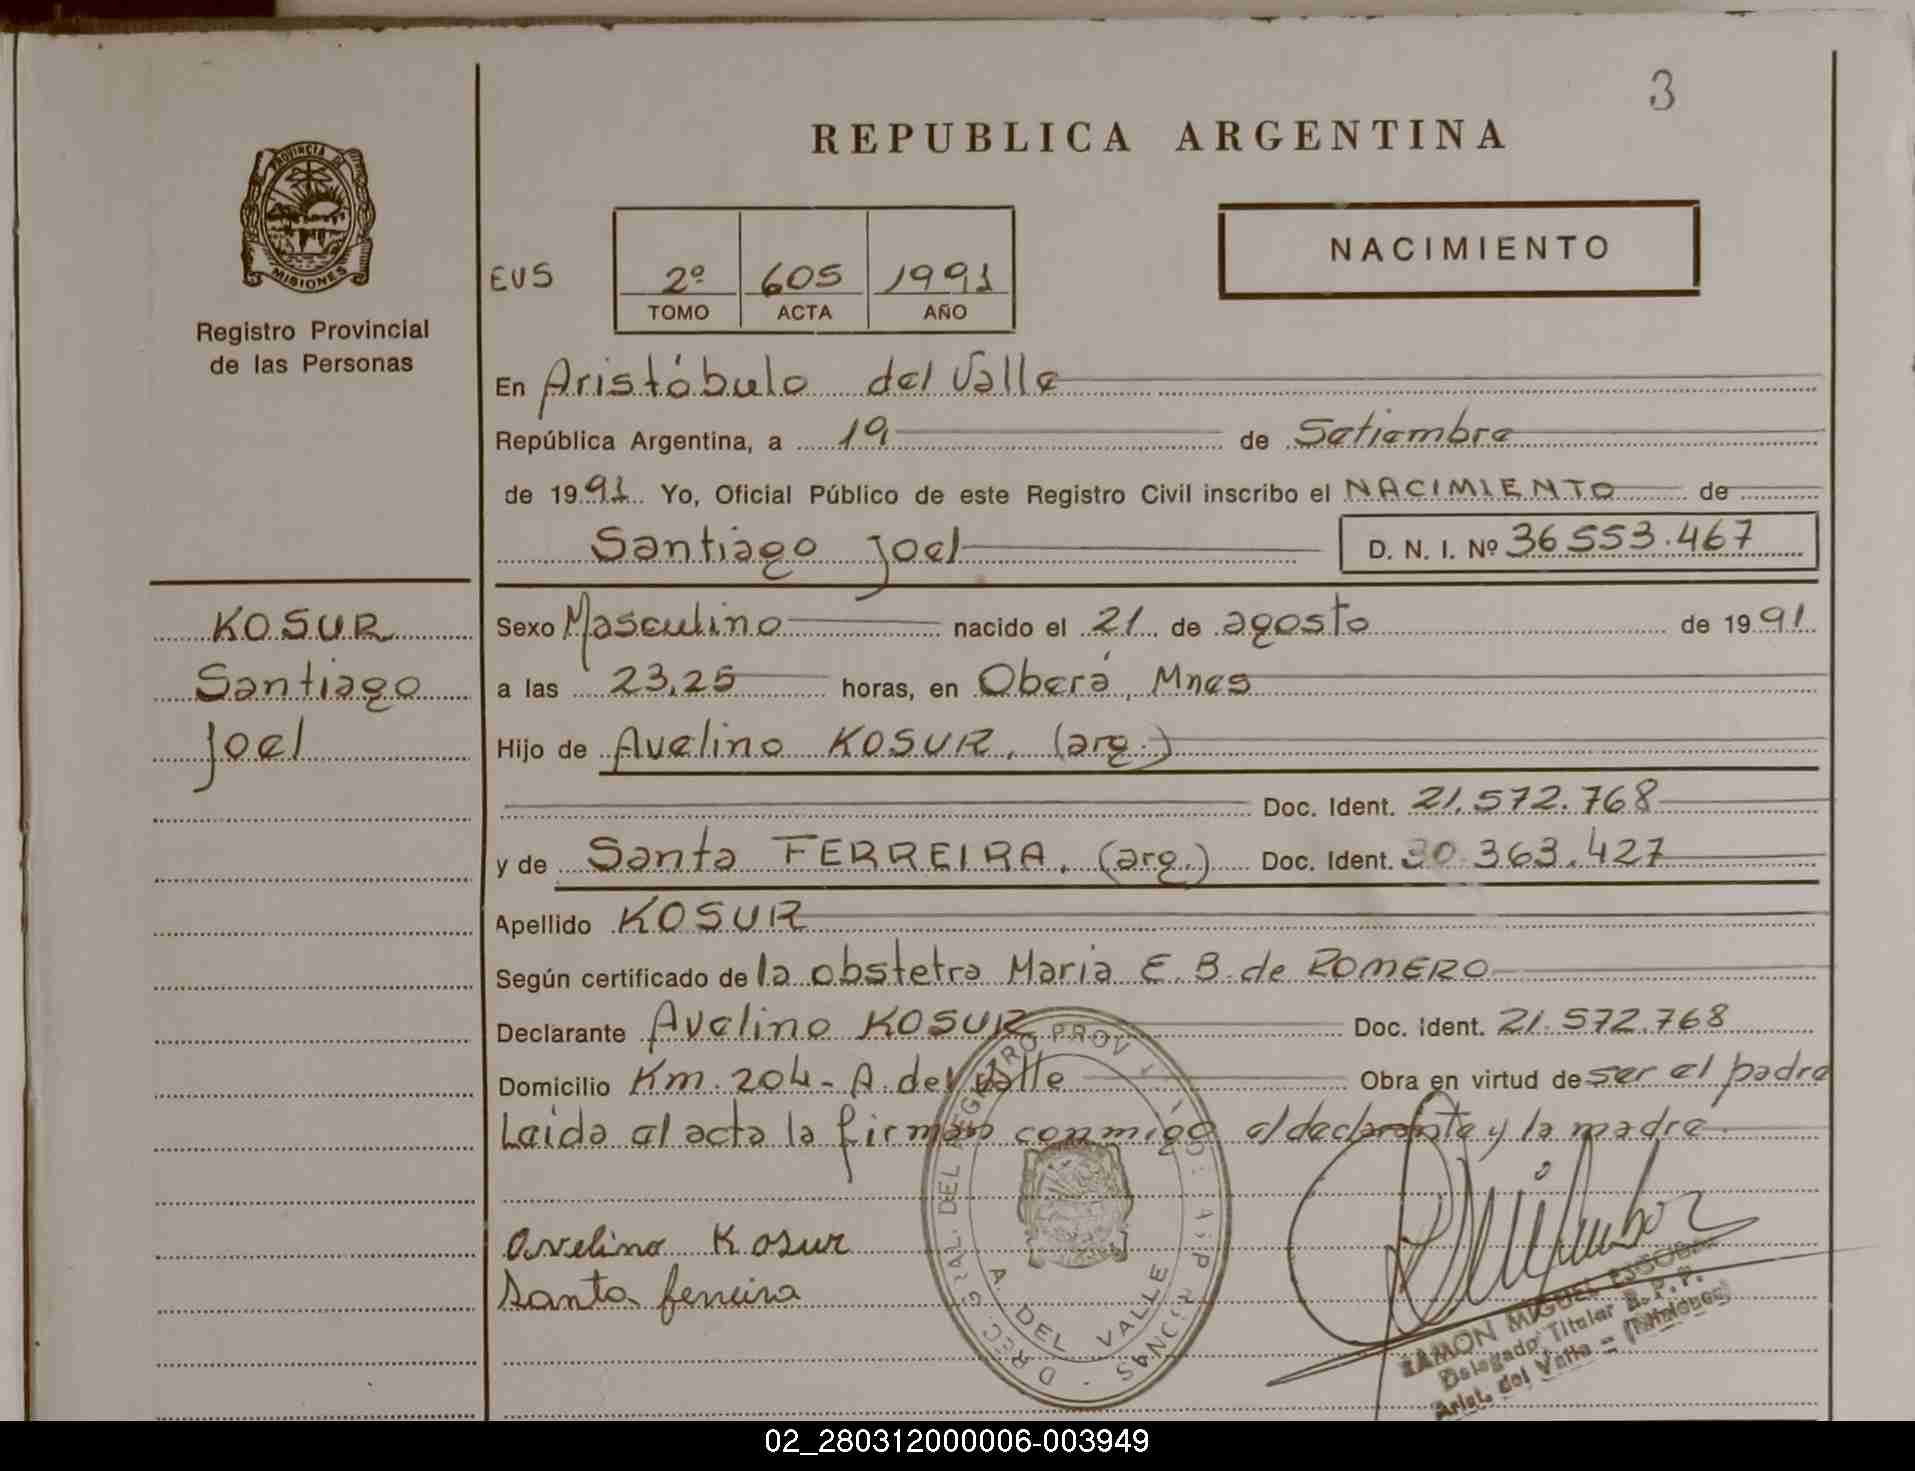 3
REPUBLICA ARGENTINA
PROVINCIA DE
MISIONES
Registro Provincial
de las Personas
EUS
2º 605 1991
TOMO ACTA AÑO
NACIMIENTO
En Aristóbulo del Valle
República Argentina, a 19 de Setiembre
de 1991 Yo, Oficial Público de este Registro Civil inscribo el NACIMIENTO de
Santiago Joel D. N. I. Nº 36 553.467
KOSUR
Santiago
Joel
Sexo Masculino nacido el 21 de agosto de 1991
a las 23,25 horas, en Oberá, Mnes
Hijo de Avelino KOSUR, (arg.)
Doc. Ident. 21.572.768
y de Santa FERREIRA, (arg.) Doc. Ident. 30.363.427
Apellido KOSUR
Según certificado de la obstetra Maria E. B. de ROMERO
Declarante Avelino KOSUR Doc. Ident. 21.572.768
Domicilio Km. 204 - A. del Valle Obra en virtud de ser el padre
Leida el acta la firman conmigo el declarante y la madre.
Avelino Kosur
Santa ferreira
GRAL. DEL REGISTRO PROV
A. DEL VALLE
RAMON MIGUEL ESCOBAR
Delegado Titular R. P. P.
Arist. del Valle = (Misiones)
02_280312000006-003949